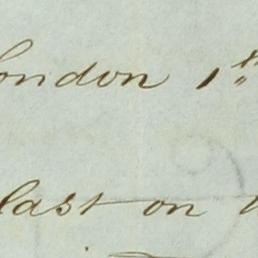 London 1st
last on